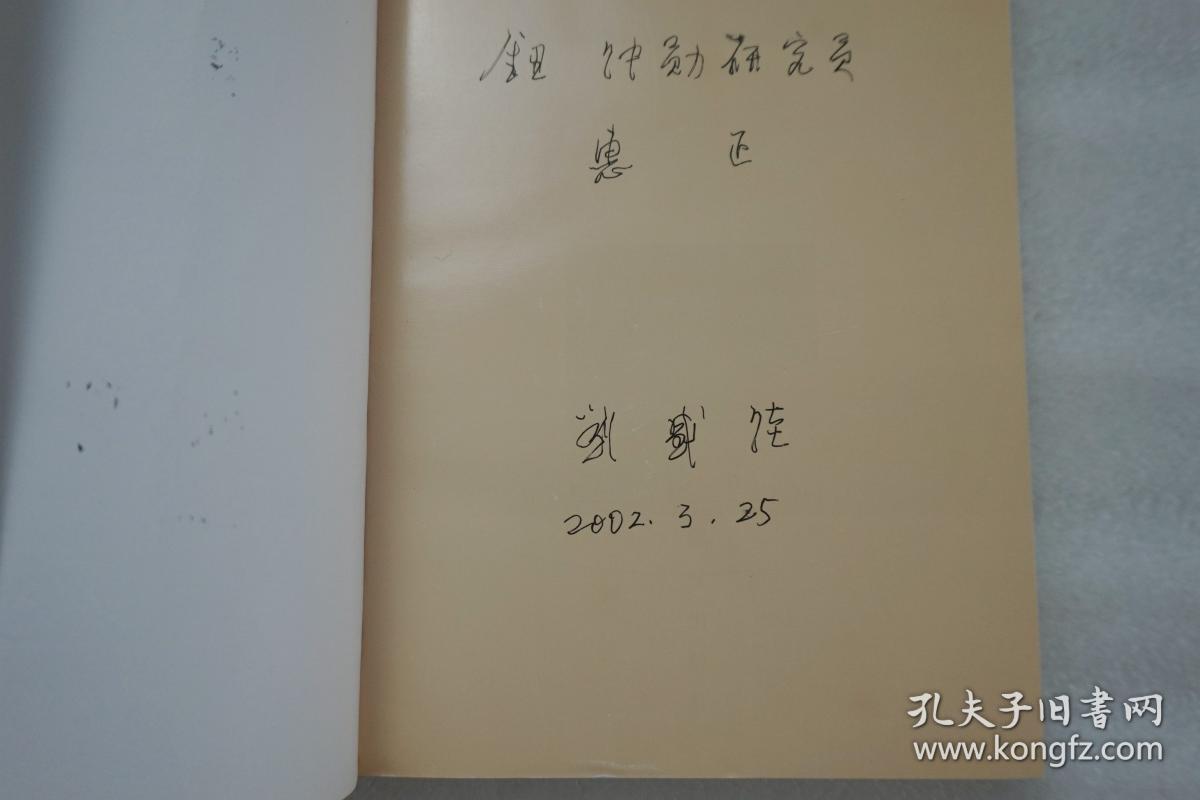 钮仲勋研究员
惠正
刘盛佳
2002.3.25
孔夫子旧書网
www.kongfz.com